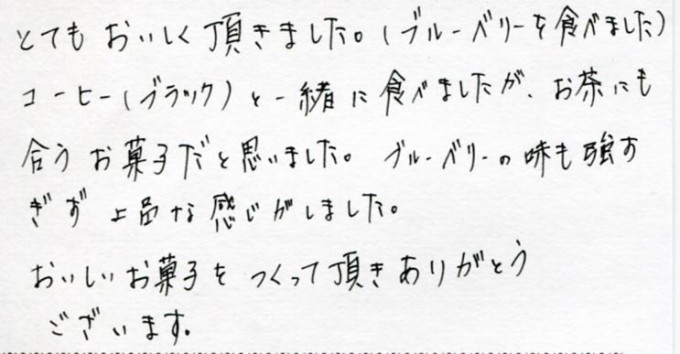 とてもおいしく頂きました。(ブルーベリーを食べました)
コーヒー(ブラック)と一緒に食べましたが、お茶にも
合うお菓子だと思いました。ブルーベリーの味も強す
ぎず上品な感じがしました。
おいしいお菓子をつくって頂きありがとう
ございます。